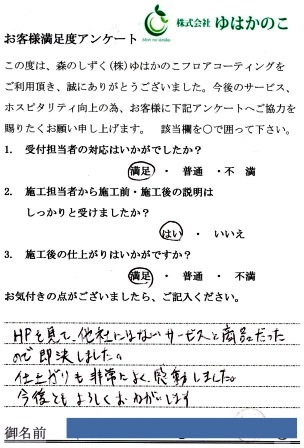 株式会社 ゆはかのこ
お客様満足度アンケート
この度は、森のしずく(株)ゆはかのこフロアコーティングを
ご利用頂き、誠にありがとうございました。今後のサービス、
ホスピタリティ向上の為、お客様に下記アンケートへご協力を
賜りたくお願い申し上げます。 該当欄を○で囲って下さい。
1. 受付担当者の対応はいかがでしたか?
満足 ・ 普通 ・不 満
2. 施工担当者から施工前・施工後の説明は
しっかりと受けましたか?
はい ・ いいえ
3. 施工後の仕上がりはいかがですか?
満足 ・ 普通 ・ 不満
お気付きの点がございましたら、ご記入ください。
HPを見て、他社にはないサービスと商品だった
ので即決しました。
仕上がりも非常によく、感動しました。
今後ともよろしくおねがいします
御名前